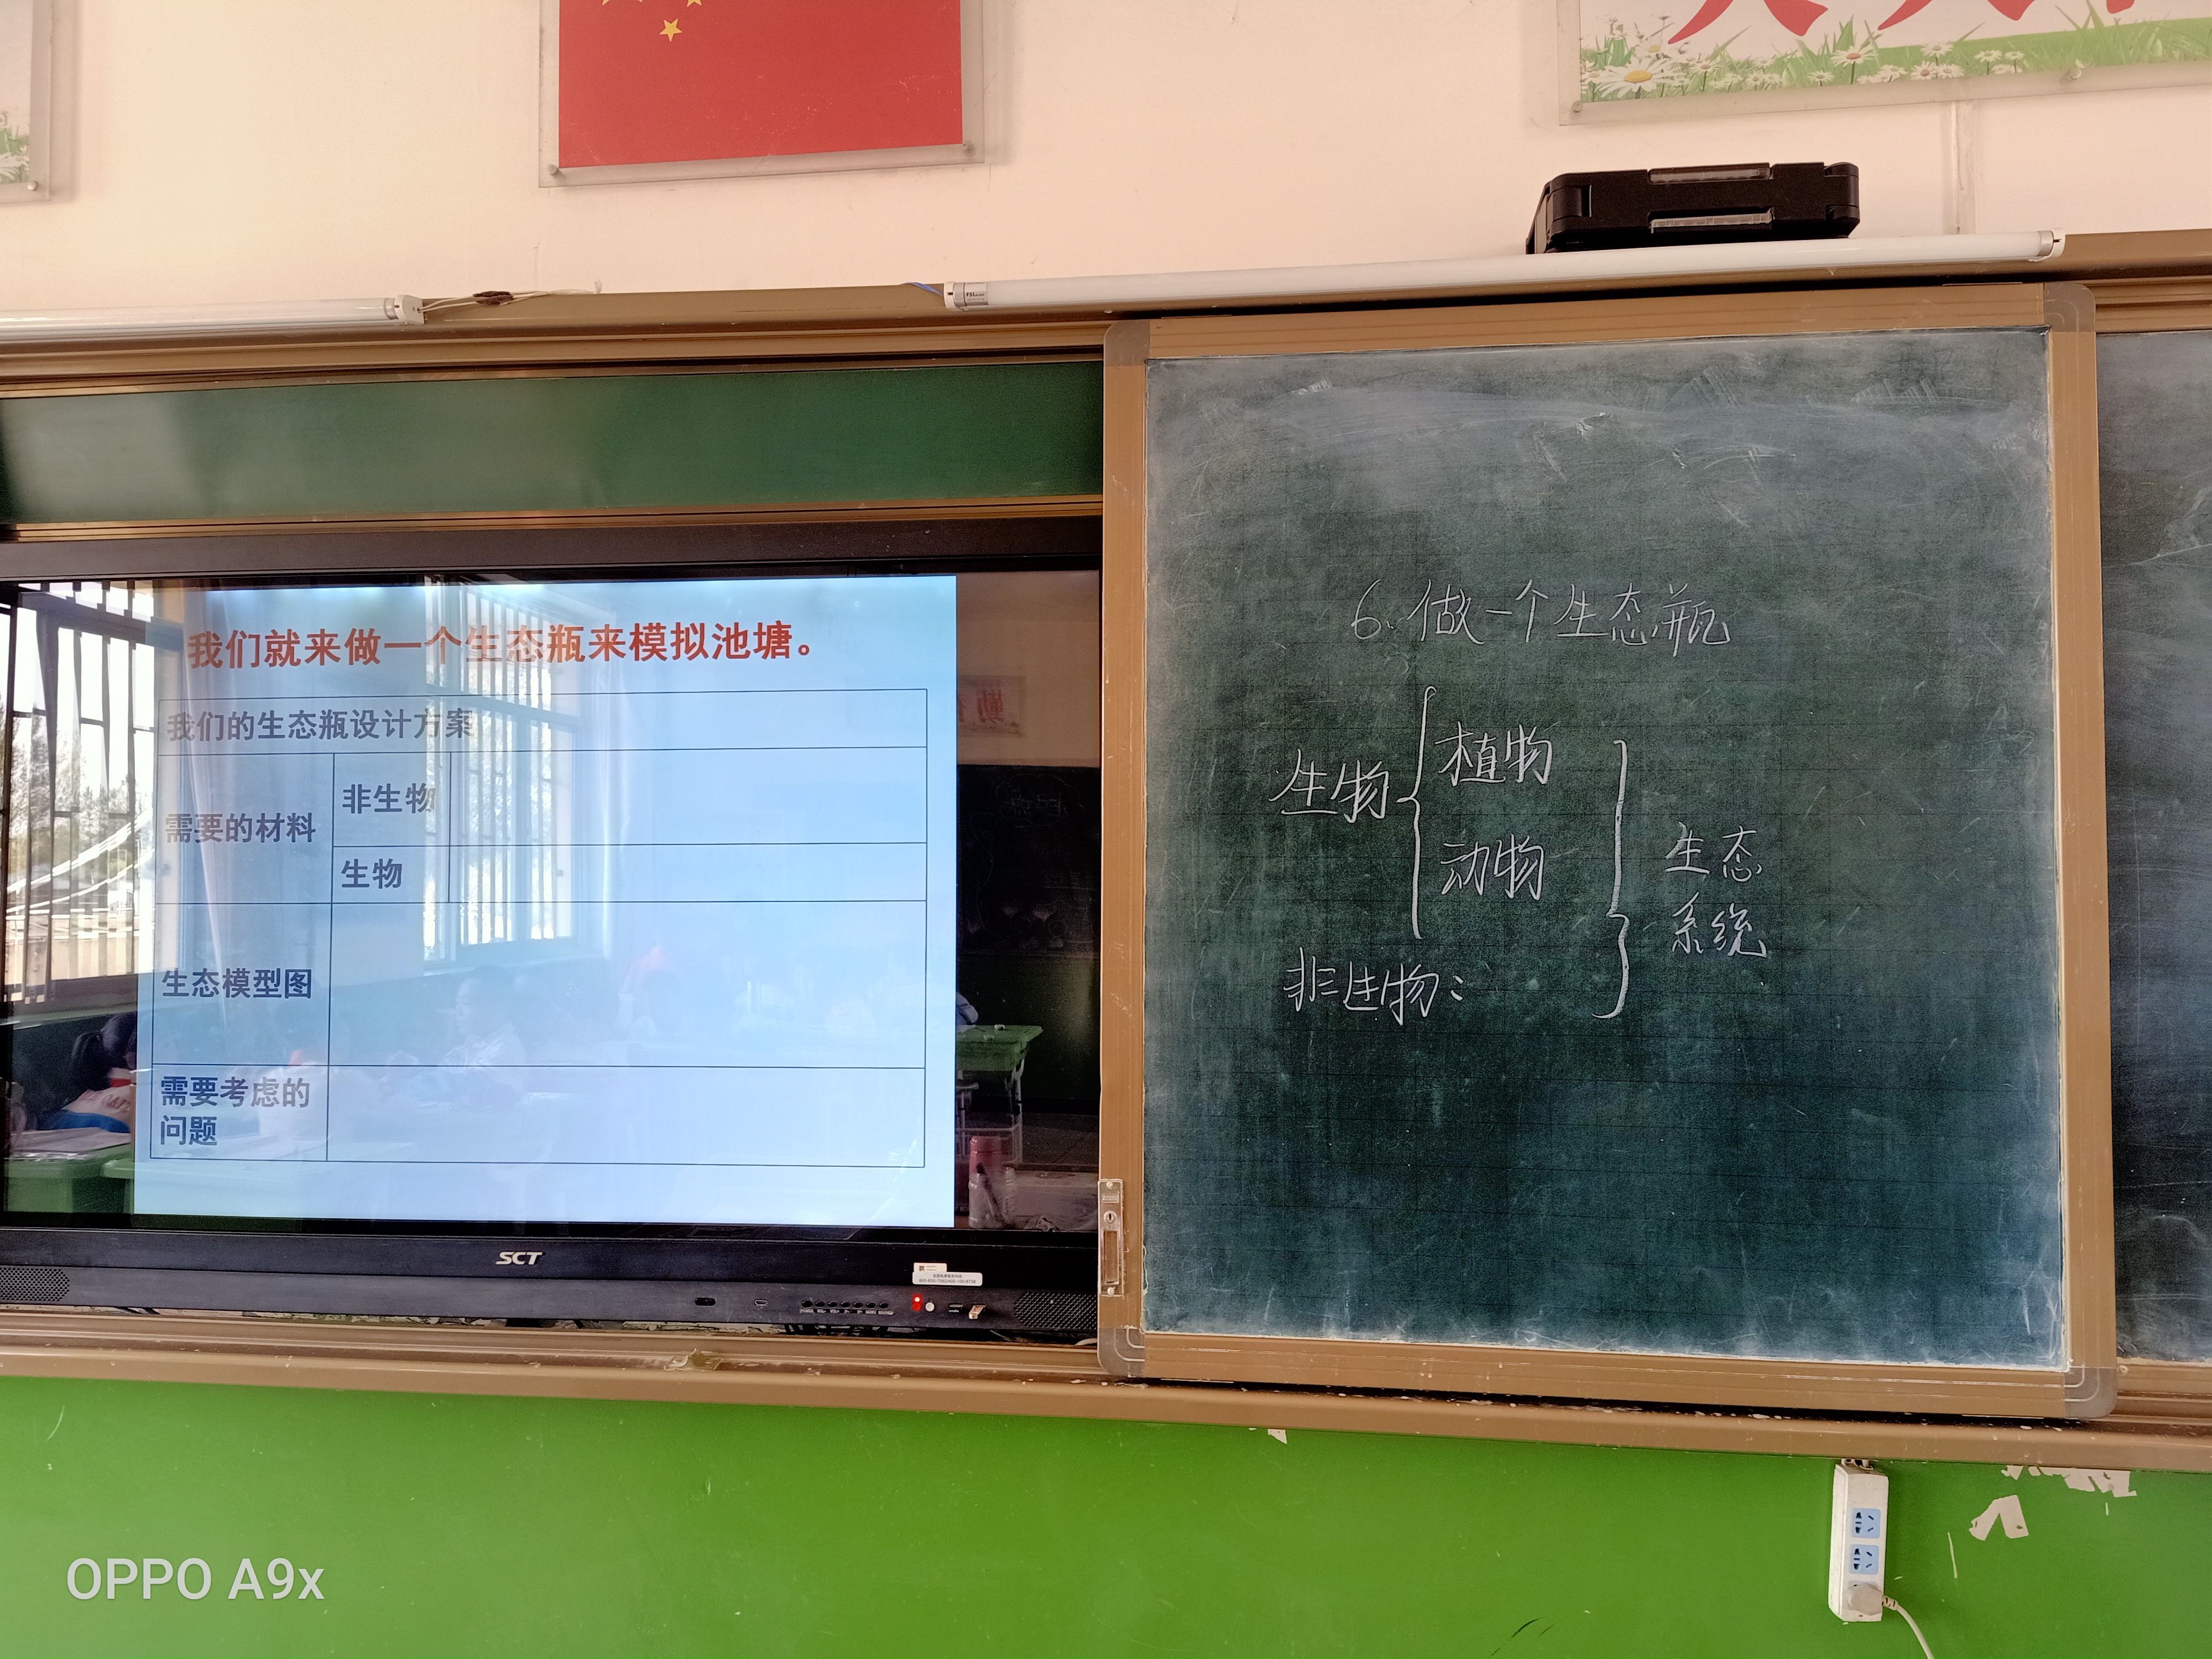 我们就来做一个生态瓶来模拟池塘。
我们的生态瓶设计方案
需要的材料
非生物
生物
生态模型图
需要考虑的
问题
SCT
6. 做一个生态瓶
生物
植物
动物
非生物:
生态
系统
OPPO A9x